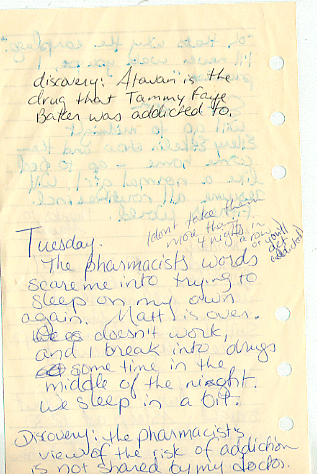 discovery: Atavan is the
drug that Tammy Faye
Baker was addicted to.
(dont take these
more than
4 nights in
a row
or you'll
get
addicted)
Tuesday.
The pharmacists words
scare me into trying to
sleep on my own
again. Matt is over.
doesn't work,
and I break into drugs
some time in the
middle of the night.
we sleep in a bit.
Discovery: the pharmacists
view of the risk of addiction
is not shared by my doctor.